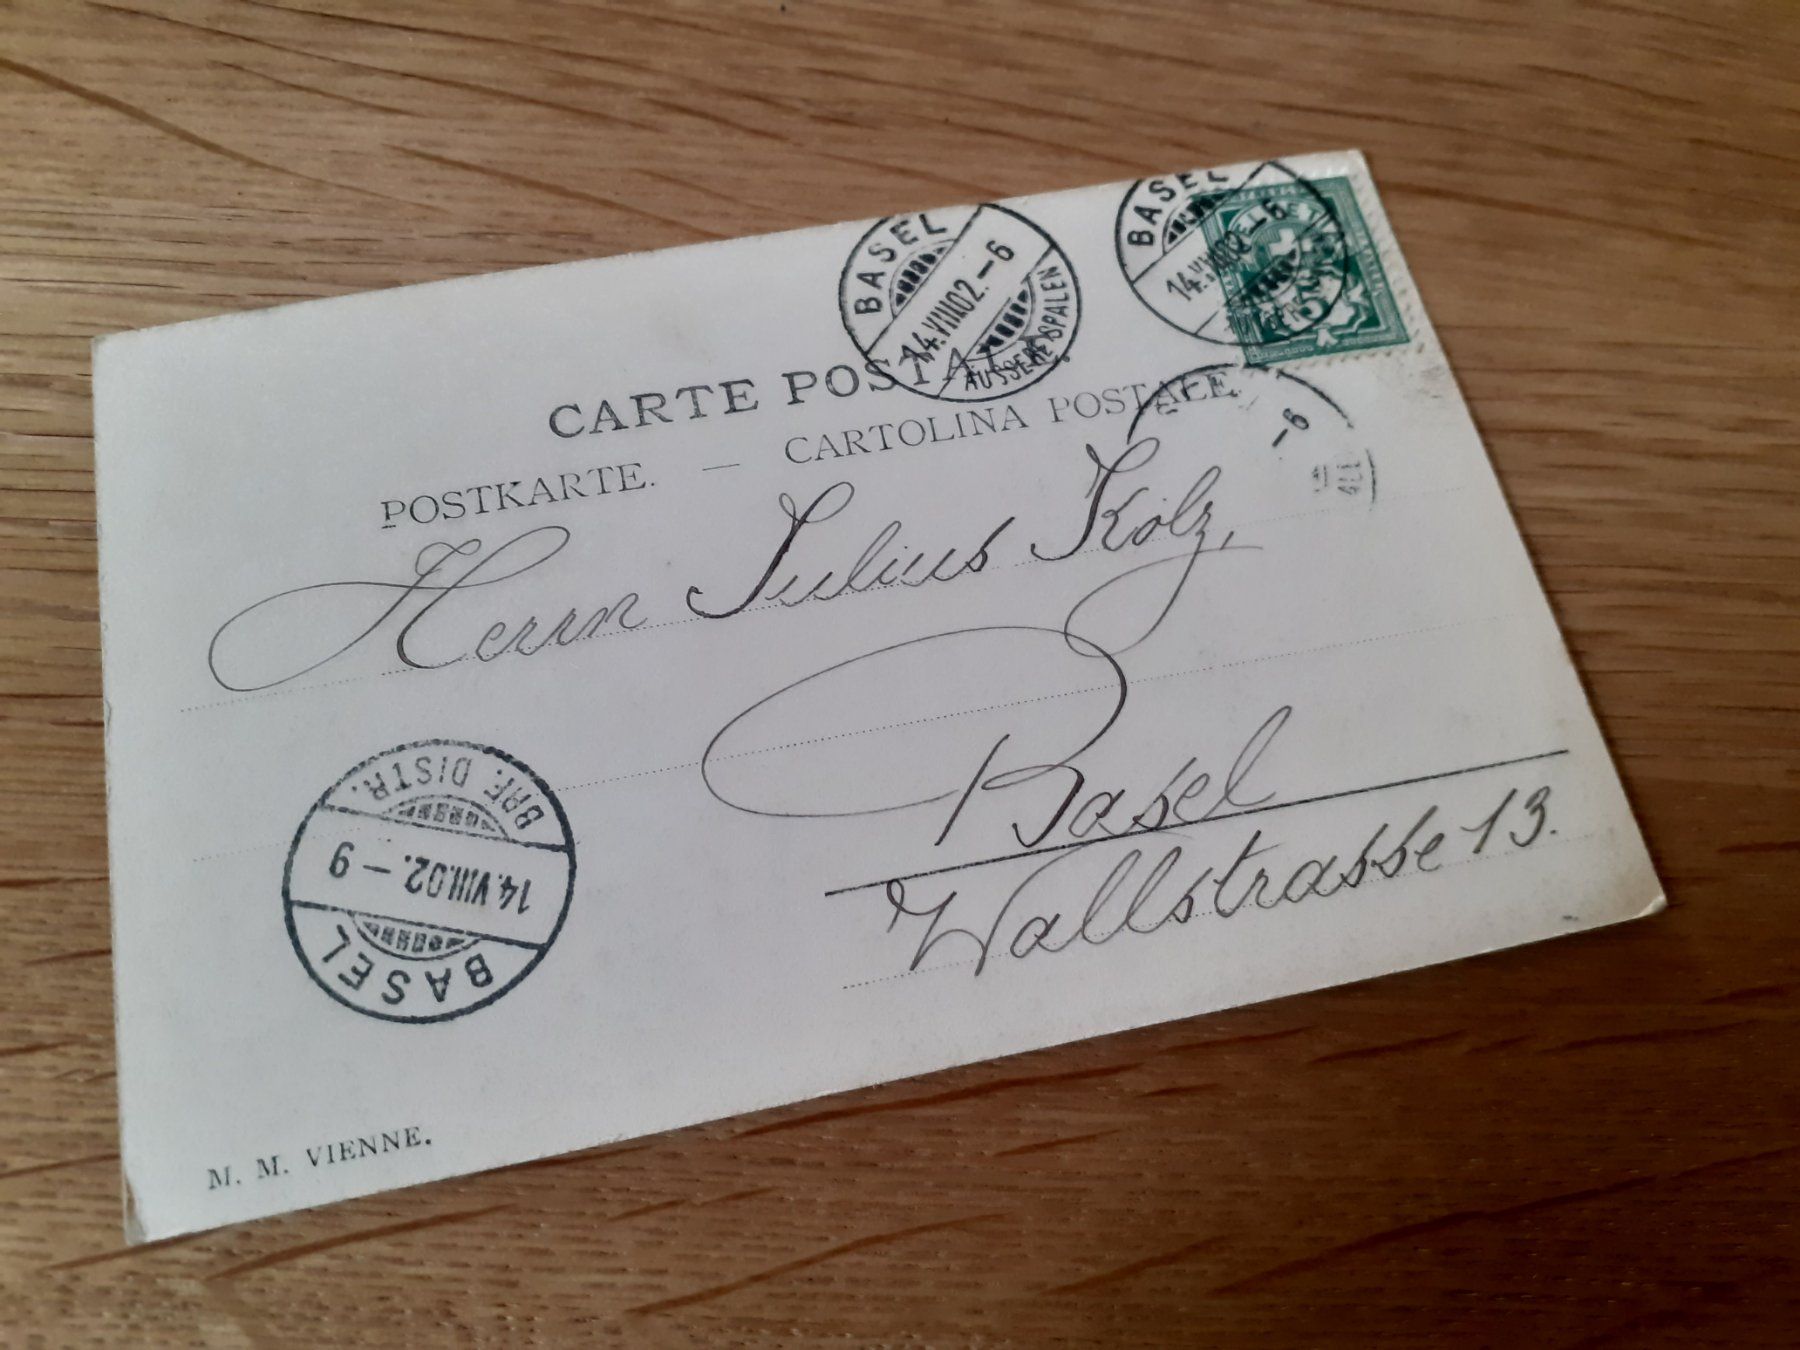 BASEL
14.VIII.02.-6
AUSSERE SPALEN
BASEL
14.VIII.02.-6
HELVETIA
-6
CARTE POSTALE.
POSTKARTE. — CARTOLINA POSTALE.
Herrn Julius Kolz,
Basel
Wallstrasse 13.
BASEL
14.VIII.02.-9
BRF. DISTR.
M. M. VIENNE.